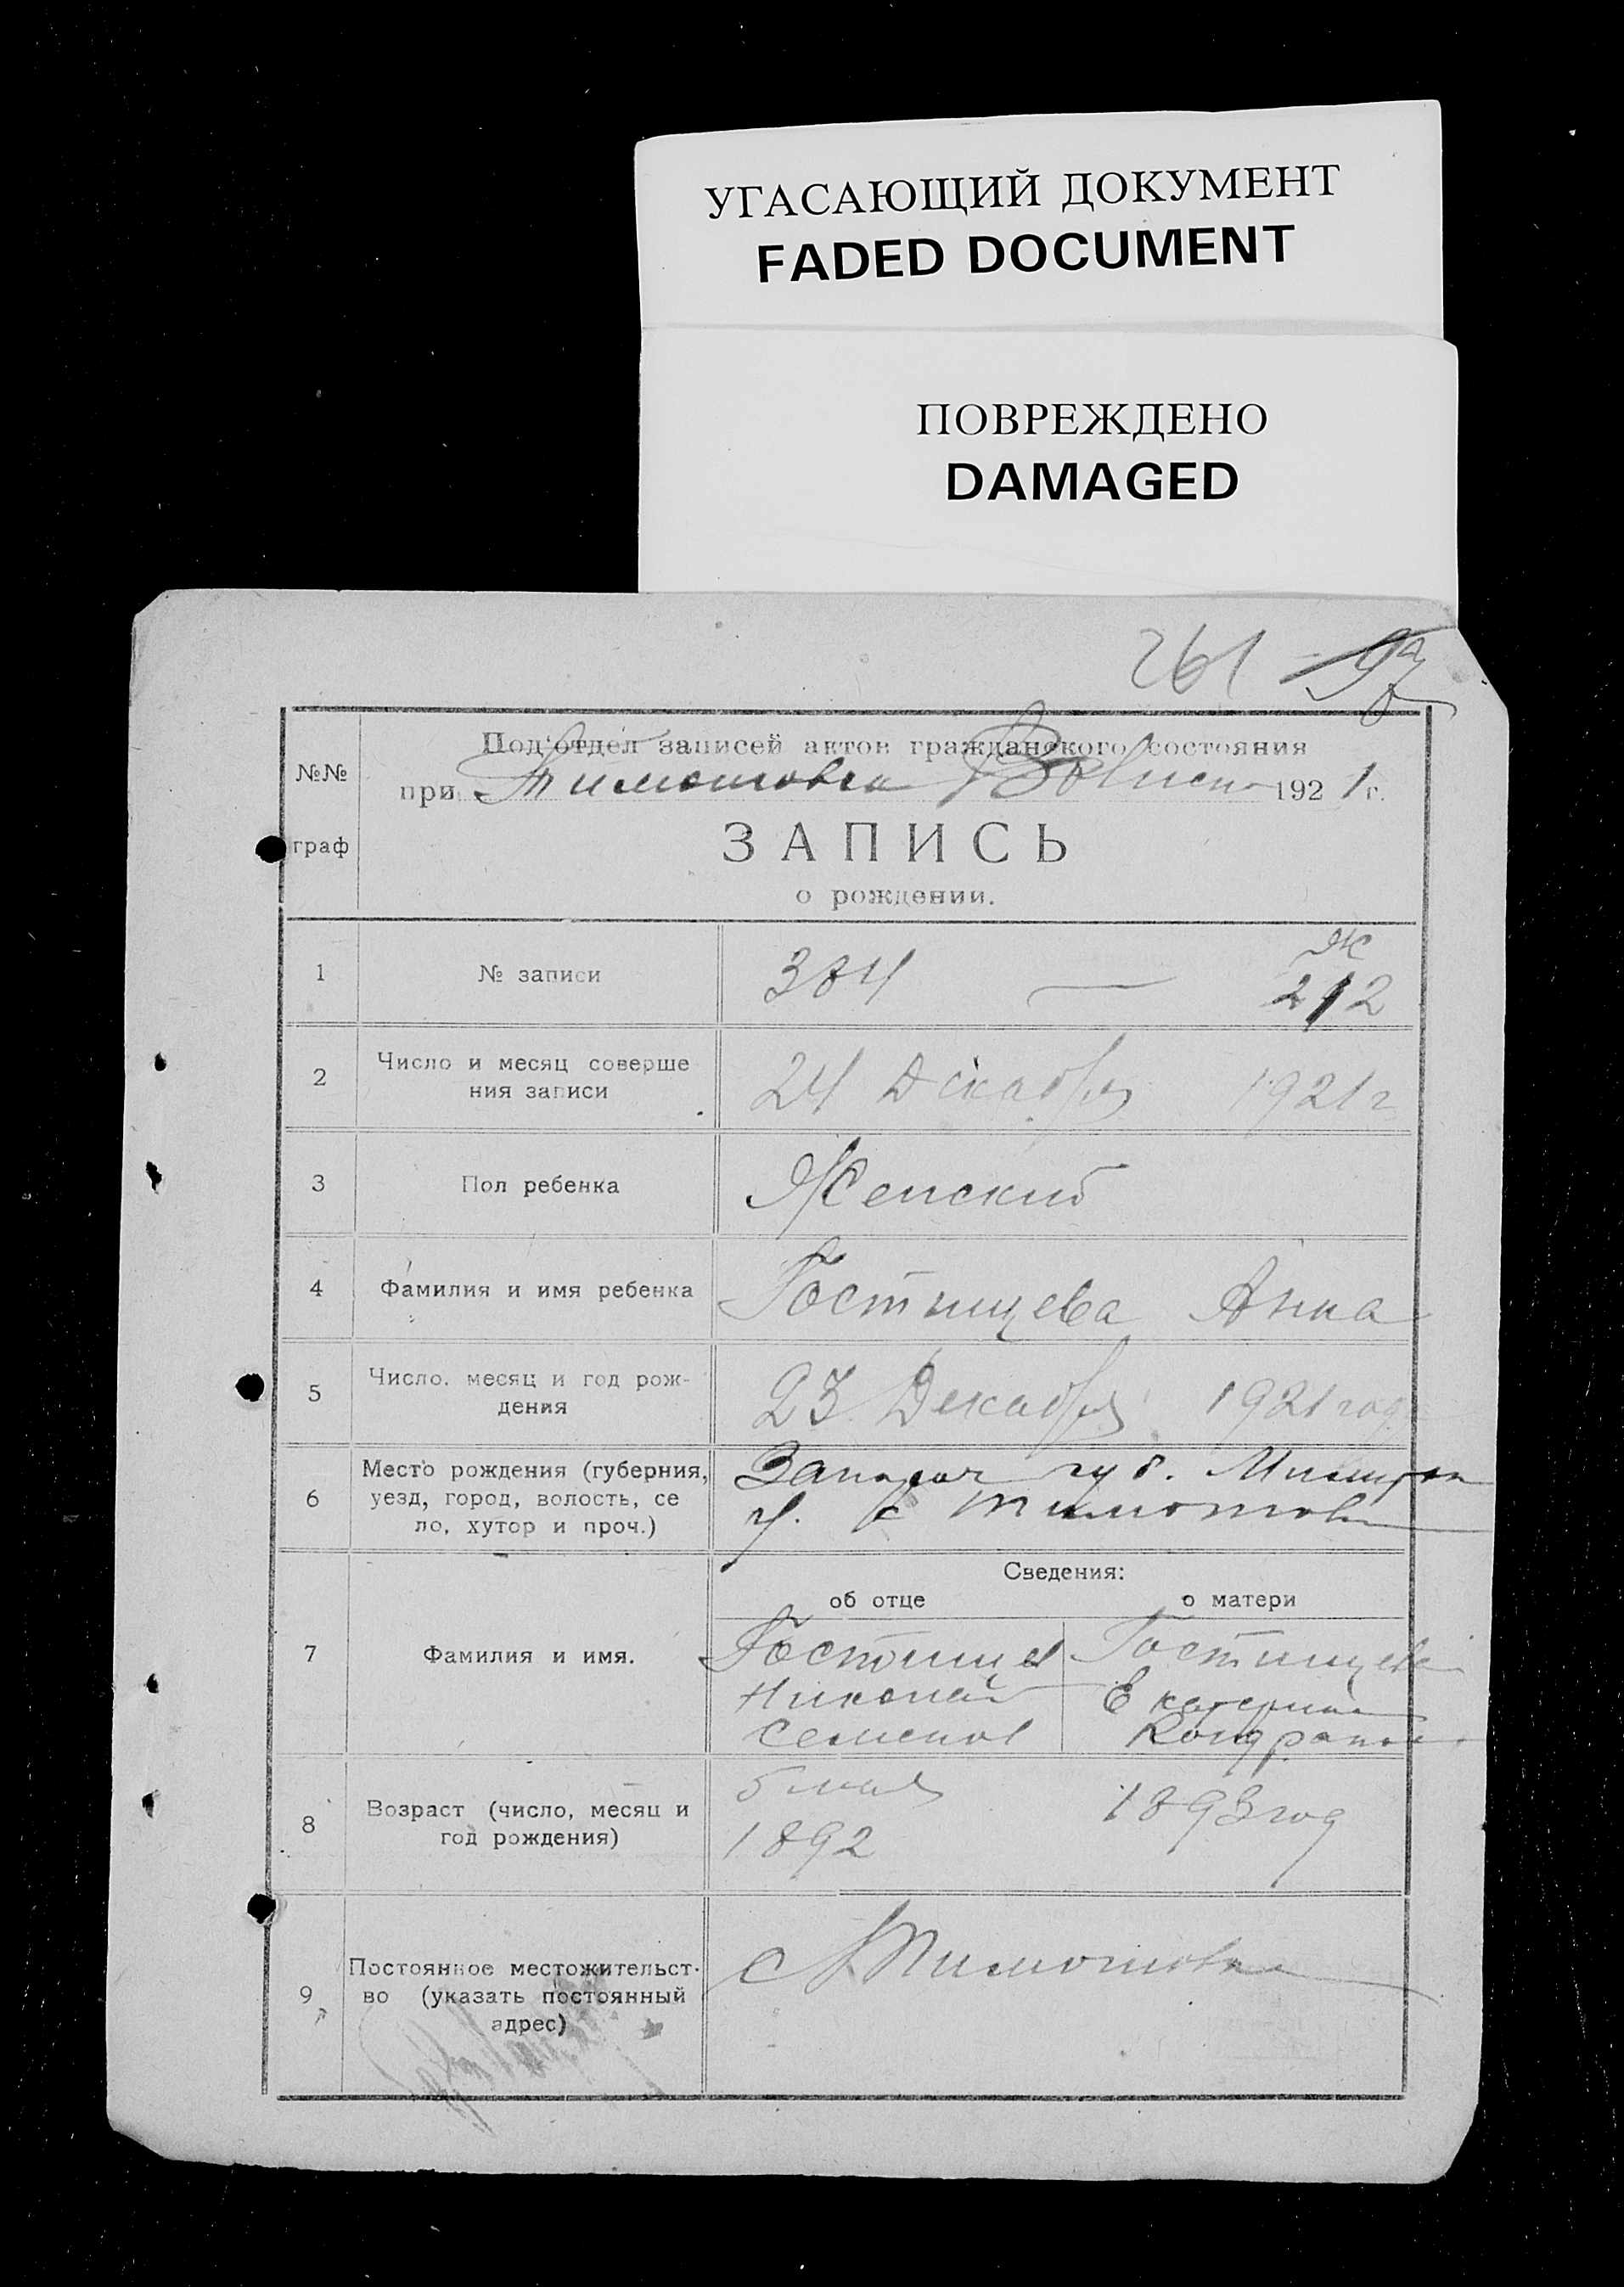 УГАСАЮЩИЙ ДОКУМЕНТ
FADED DOCUMENT
ПОВРЕЖДЕНО
DAMAGED
261
№№
граф
Под'отдел записей актов гражданского состояния
при Тимошовка 1921 г.
ЗАПИСЬ
о рождении.
1 № записи 384 — Ж 212
2 Число и месяц соверше
ния записи 24 Декабря 1921 г
3 Пол ребенка Женский
4 Фамилия и имя ребенка Гостищева Анна
5 Число, месяц и год рож-
дения 23 Декабря 1921 год
6 Место рождения (губерния,
уезд, город, волость, се
ло, хутор и проч.)
губ.
у. с Тимошовк
Сведения:
об отце о матери
7 Фамилия и имя.
Гостищев Гостищева
Николай Екатерина
Семенов
8 Возраст (число, месяц и
год рождения)
5 мая 1893 год
1892
9 Постоянное местожительст-
во (указать постоянный
адрес)
с Тимошовка